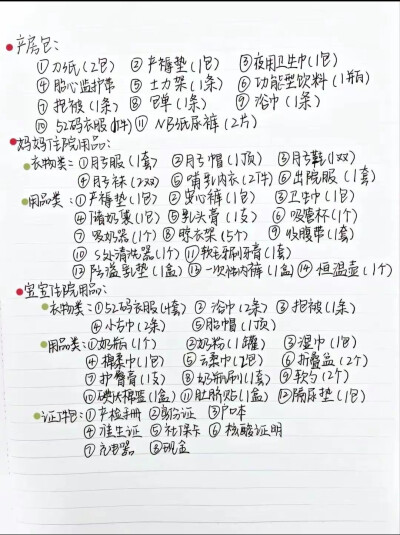 产房包:
①刀纸(2包) ②产褥垫(1包) ③夜用卫生巾(1包)
④胎心监护带 ⑤士力架(1条) ⑥功能型饮料(1瓶)
⑦抱被(1条) ⑧包单(1条) ⑨浴巾(1条)
⑩52码衣服(1件) ⑪NB纸尿裤(2片)
妈妈住院用品:
衣物类:①月子服(1套) ②月子帽(1顶) ③月子鞋(1双)
④月子袜(2双) ⑤哺乳内衣(2件) ⑥出院服(1套)
用品类:①产褥垫(1包) ②安心裤(1包) ③卫生巾(1包)
④储奶袋(1包) ⑤乳头膏(1支) ⑥吸管杯(1个)
⑦吸奶器(1个) ⑧晾衣架(5个) ⑨收腹带(1套)
⑩S处清洗器(1个) ⑪软毛牙刷牙膏(1套)
⑫防溢乳垫(1盒) ⑬一次性内裤(1盒) ⑭恒温壶(1个)
宝宝住院用品:
衣物类:①52码衣服(4套) ②浴巾(2条) ③抱被(1条)
④小方巾(2条) ⑤胎帽(1顶)
用品类:①奶瓶(1个) ②奶粉(1罐) ③湿巾(1包)
④棉柔巾(1包) ⑤云柔巾(2包) ⑥折叠盆(2个)
⑦护臀膏(1支) ⑧奶瓶刷(1套) ⑨软勺(2个)
⑩碘伏棉签(1盒) ⑪肚脐贴(1盒) ⑫隔尿垫(1包)
证件包:①产检手册 ②身份证 ③户口本
④准生证 ⑤社保卡 ⑥核酸证明
⑦充电器 ⑧现金